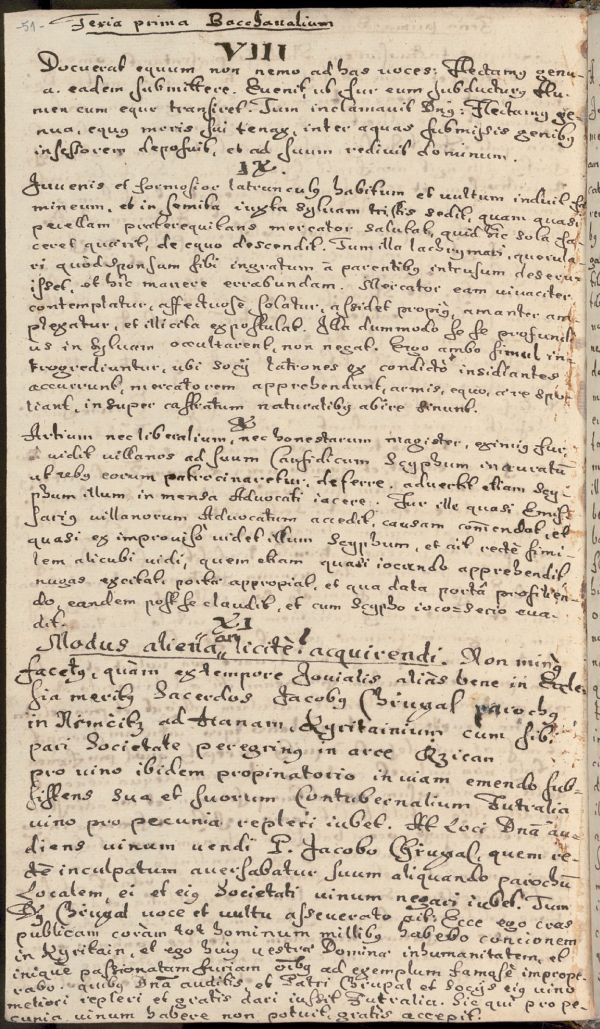 -51- Feria prima Bacchanalium
VIII
Docuerat equum non nemo ad has voces: Flectamus genu-
a. eadem submittere. Evenit, ut fur eum subductum flu-
men cum equo transiret. Tum inclamavit Dnus: Flectamus ge-
nua, equus moris sui tenax, inter aquas submissis genibus
insessorem deposuit, et ad suum redivit dominum.
IX.
Juvenis et formosior latrunculus habitum et vultum induit fæ-
mineum, et in semita iuxta sylvam tristis sedit, quam quasi
puellam præterequitans mercator salutat, quid hic sola fa-
ceret quærit, de equo descendit. Tum illa lachrymari, querula-
ri quòd sponsum sibi ingratum à parentibus intrusum deseru-
isset, et hic manere errabundam. Mercator eam vivaciter
contemplatur, affectuosè solatur, assidet propius, amanter am-
plexatur, et illicita expostulat. Illa dummodo se se profundi-
us in sylvam occultarent, non negat. Ergo ambo simul in-
trogrediuntur, ubi socij latrones ex condicto insidiantes
accurrunt, mercatorem apprehendunt, armis, equo, ære spo-
liant, insuper castratum naturalibus abire sinunt.
X
Artium nec liberalium, nec honestarum magister, eximius fur,
vidit villanos ad suum Causidicum Scyphum inauratum
ut rebus eorum patrocinaretur, deferre. advertit etiam Scy-
phum illum in mensa Advocati iacere. Fur ille quasi Emis-
sarius villanorum Advocatum accedit, causam commendat, et
quasi ex improviso videt illum Scyphum, et ait rectè simi-
lem alicubi vidi, quem etiam quasi iocando apprehendit
nugas excitat, portæ appropiat, et qua data portâ profitien-
do, eandem post se claudit, et cum scypho ioco=serio eva-
dit.
XI
Modus aliena an licitè? acquirendi. Non minus
facetus, quàm extempore Jovialis aliàs bene in Eccle-
sia meritus Sacerdos Jacobus Chrugal parochus
in Němčitz ad Hanam, Kyritainium cum sibi
pari Societate peregrinus in arce Rzican
pro vino ibidem propinatorio in viam emendo sub-
sistens sua et suorum Contubernalium Futralia
vino pro pecunia repleri iubet. At Loci Dna au-
diens vinum vendi P. Jacobo Chrugal, quem re-
ctè inculpatum aversabatur suum aliquando parochum
Localem, ei et eius Societati vinum negari iubet. Tum
Chrugal voce et vultu asseverato ait: Ecce ego cras
publicam coram tot hominum millibus habebo concionem
in Kyritain, et ego huius vestræ Dominæ inhumanitatem, et
iniquè passionatam furiam omnibus ad exemplum famosè impropе-
rabo. quibus Dna auditis et Patri Chrugal et Socijs eius vino
meliori repleri et gratis dari iussit Futralia. Sic qui pro pe-
cunia vinum habere non potuit, gratis accepit.